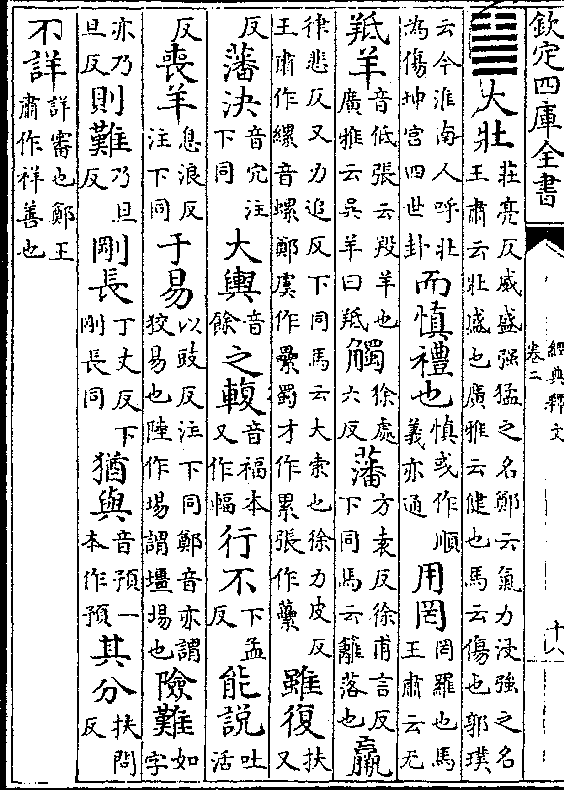 欽定四庫全書
經典釋文
卷二
十八
䷡大壯莊亮反威盛强猛之名鄭云氣力浸強之名王肅云壯盛也廣雅云健也馬云傷也郭璞
云今淮南人呼壯為傷坤宫四世卦而慎禮也慎或作順義亦通用罔罔羅也馬王肅云无
羝羊音低張云羖羊也廣雅云吳羊曰羝觸徐處六反藩方袁反徐甫言反下同馬云籬落也羸
律悲反又力追反下同馬云大索也徐力皮反王肅作縲音螺鄭虞作纍蜀才作累張作虆雖復扶又
反藩決音穴注下同大輿音餘之輹音福本又作幅行不下孟反能說吐活
反喪羊息浪反注下同于易以豉反注下同鄭音亦謂狡易也陸作埸謂壃埸也險難如字
亦乃旦反則難乃旦反剛長丁丈反下剛長同猶與音預一本作預其分扶問反
不詳詳審也鄭王肅作祥善也